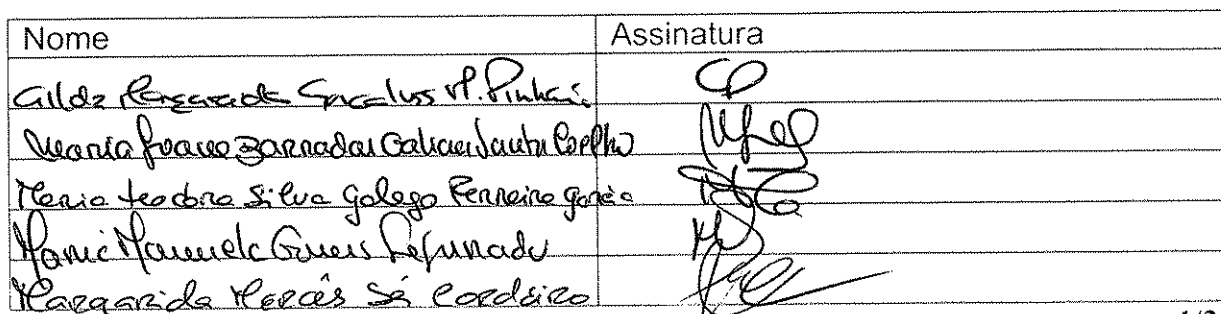 Nome Assinatura
Gilda Margarida Gonçalves M. Pinheiro
Maria Joana Barradas Santos Coelho
Maria teodora Silva Galego Ferreira garcia
Maria Manuela Gomes
Margarida Mercês Sá Cordeiro